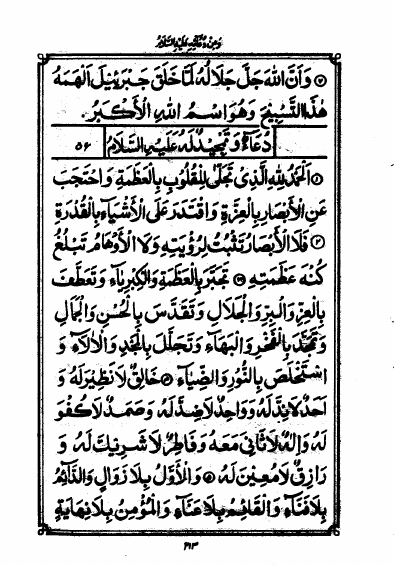 وَمِنْ دُعَائِهِ عَلَيْهِ السَّلَامُ
﴿٧﴾ وَاَنَّ اللهَ جَلَّ جَلَالُهُ لَمَّا خَلَقَ جَبْرَئِيْلَ اَلْهَمَهُ
هٰذَا التَّسْبِيْحَ وَهُوَ اسْمُ اللهِ الْاَكْبَرُ.
دُعَاءٌ وَتَمْجِيْدٌ لَهُ عَلَيْهِ السَّلَامُ ٥٦
﴿١﴾ اَلْحَمْدُ لِلّٰهِ الَّذِيْ تَجَلّٰى لِلْقُلُوْبِ بِالْعَظَمَةِ وَاحْتَجَبَ
عَنِ الْاَبْصَارِ بِالْعِزَّةِ وَاقْتَدَرَ عَلَى الْاَشْيَاءِ بِالْقُدْرَةِ
﴿٢﴾ فَلَا الْاَبْصَارُ تَثْبُتُ لِرُؤْيَتِهِ وَلَا الْاَوْهَامُ تَبْلُغُ
كُنْهَ عَظَمَتِهِ ﴿٣﴾ تَجَبَّرَ بِالْعَظَمَةِ وَالْكِبْرِيَاءِ وَتَعَطَّفَ
بِالْعِزِّ وَالْبِرِّ وَالْجَلَالِ وَتَقَدَّسَ بِالْحُسْنِ وَالْجَمَالِ
وَتَمَجَّدَ بِالْفَخْرِ وَالْبَهَاءِ وَتَجَلَّلَ بِالْمَجْدِ وَالْاٰلَاءِ وَ
اسْتَخْلَصَ بِالنُّوْرِ وَالضِّيَاءِ ﴿٤﴾ خَالِقٌ لَا نَظِيْرَ لَهُ وَ
اَحَدٌ لَا نِدَّ لَهُ وَوَاحِدٌ لَا ضِدَّ لَهُ وَصَمَدٌ لَا كُفْوَ
لَهُ وَاِلٰهٌ لَا ثَانِيَ مَعَهُ وَفَاطِرٌ لَا شَرِيْكَ لَهُ وَ
رَازِقٌ لَا مُعِيْنَ لَهُ ﴿٥﴾ وَالْاَوَّلُ بِلَا زَوَالٍ وَالدَّائِمُ
بِلَا فَنَاءٍ وَالْقَائِمُ بِلَا عَنَاءٍ وَالْمُؤْمِنُ بِلَا نِهَايَةٍ
٦١٣